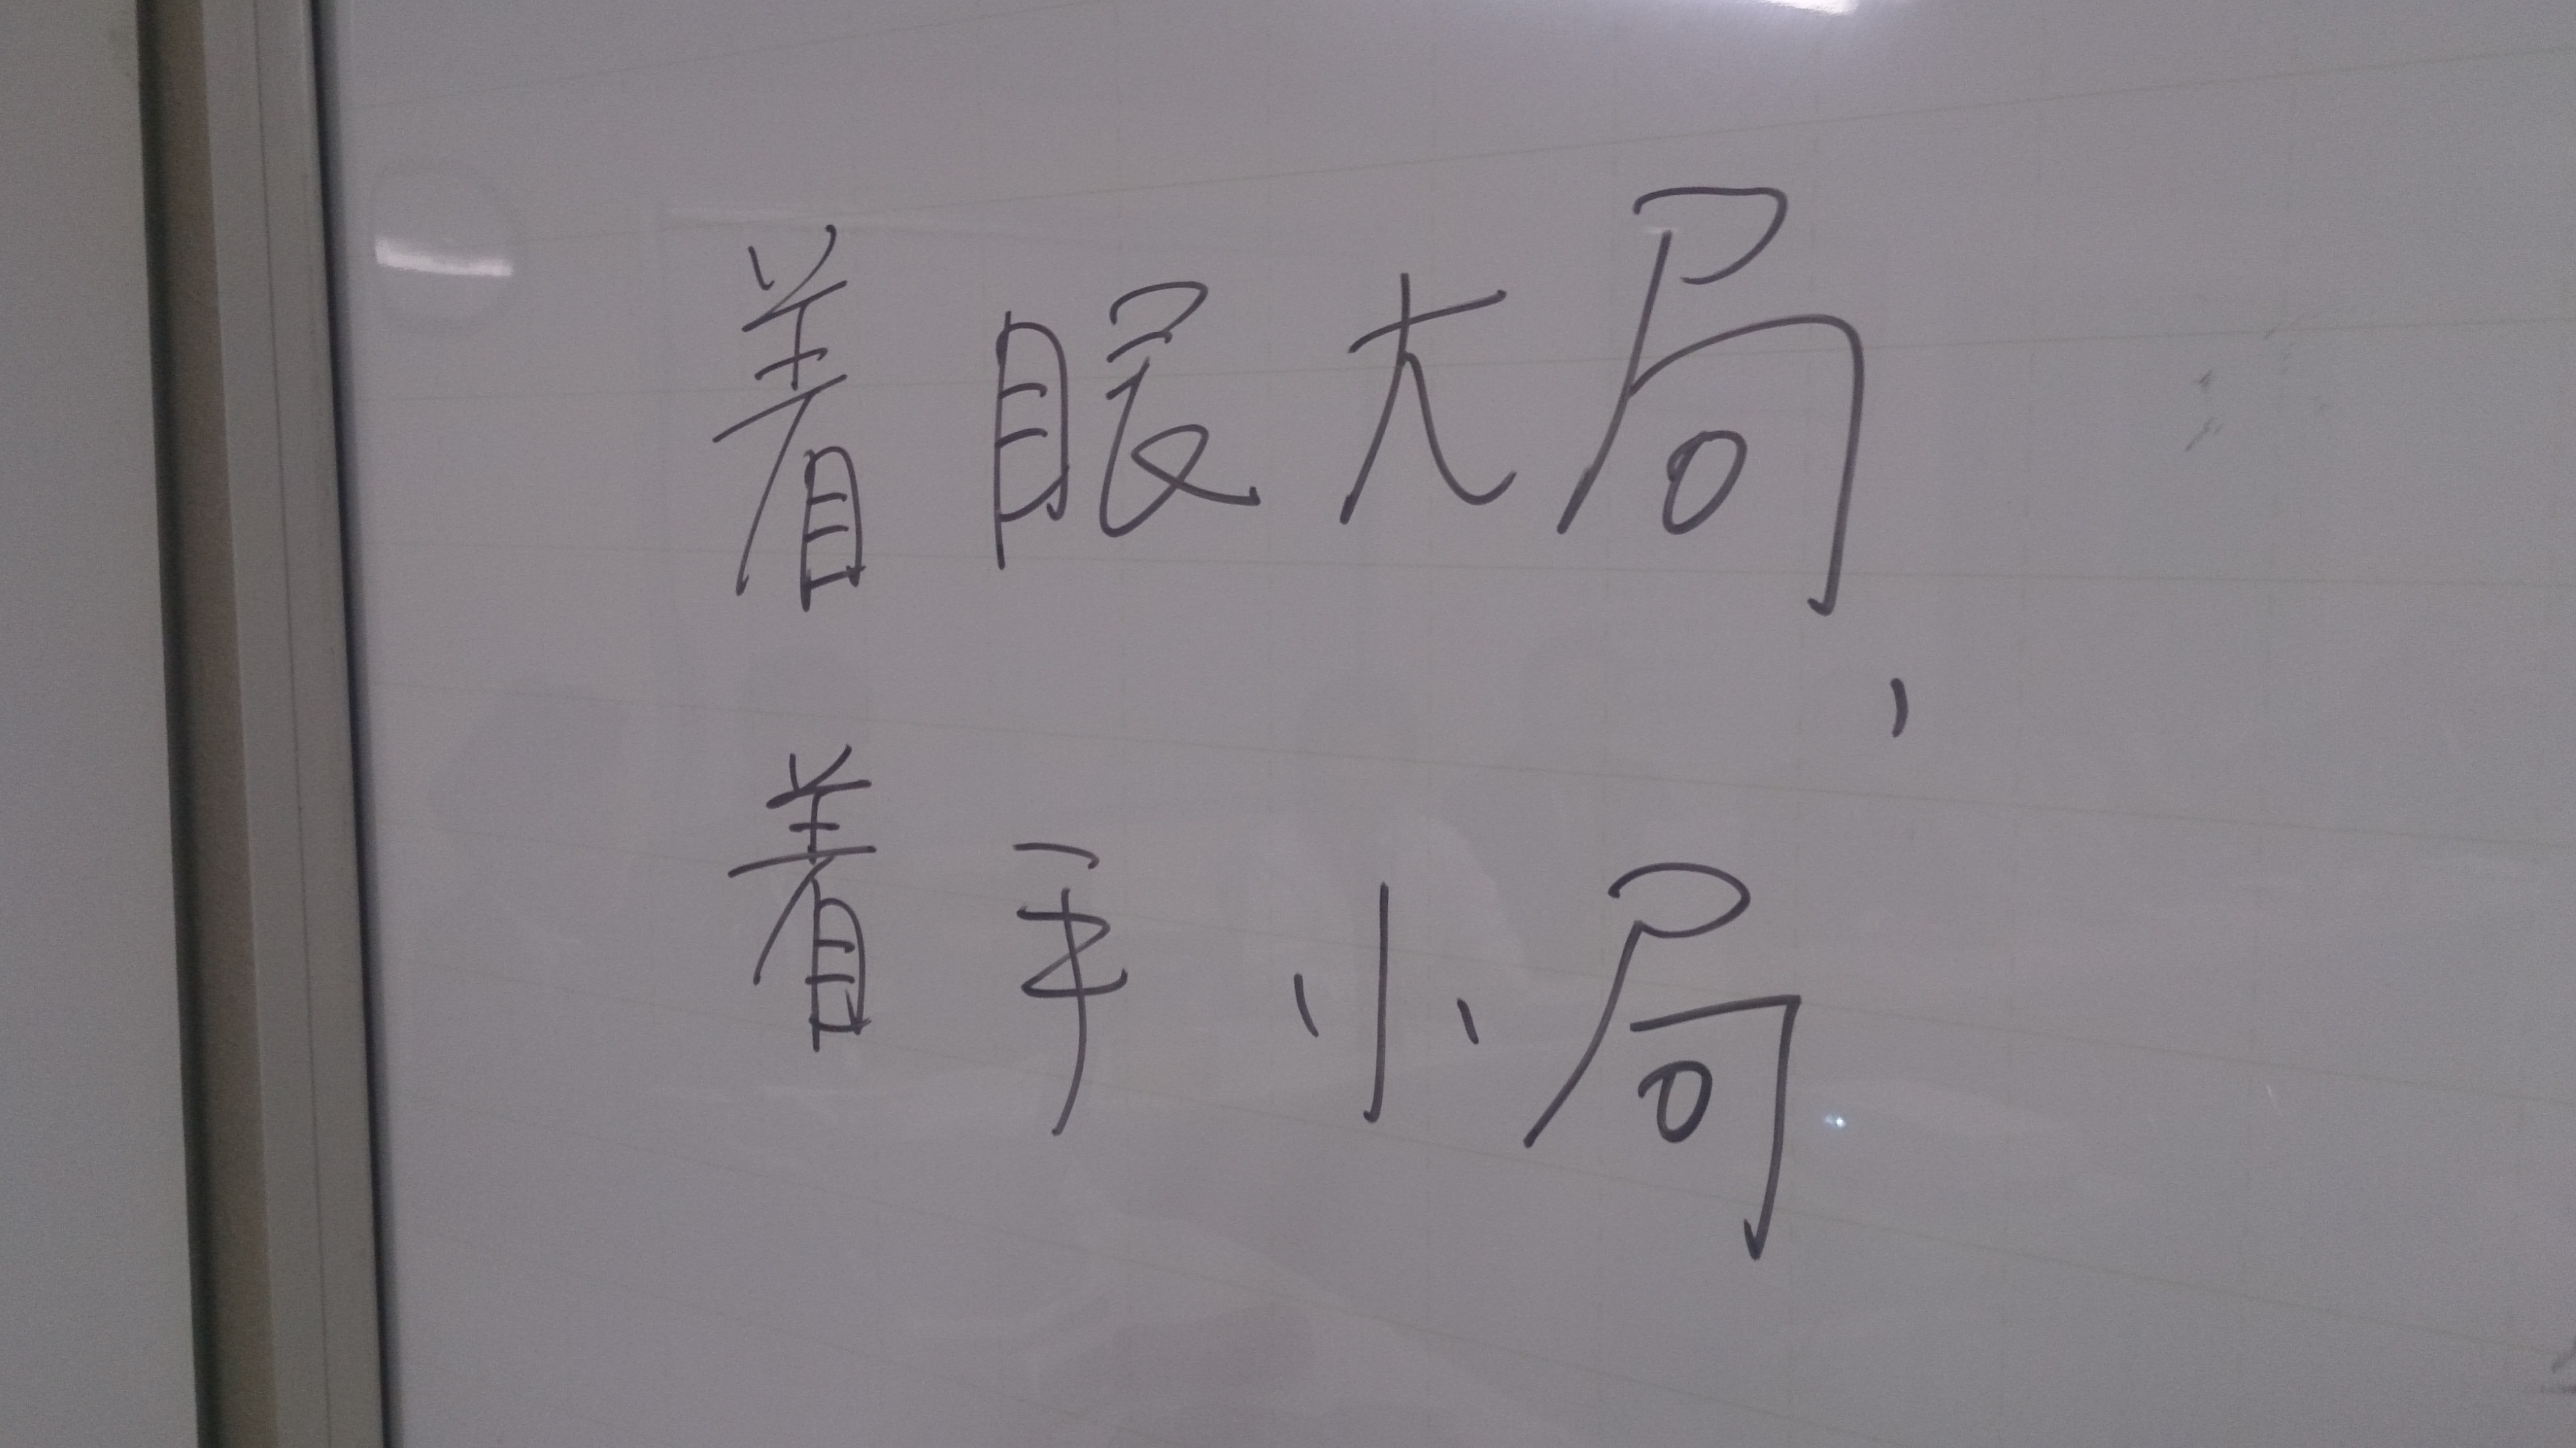 着眼大局,
着手小局